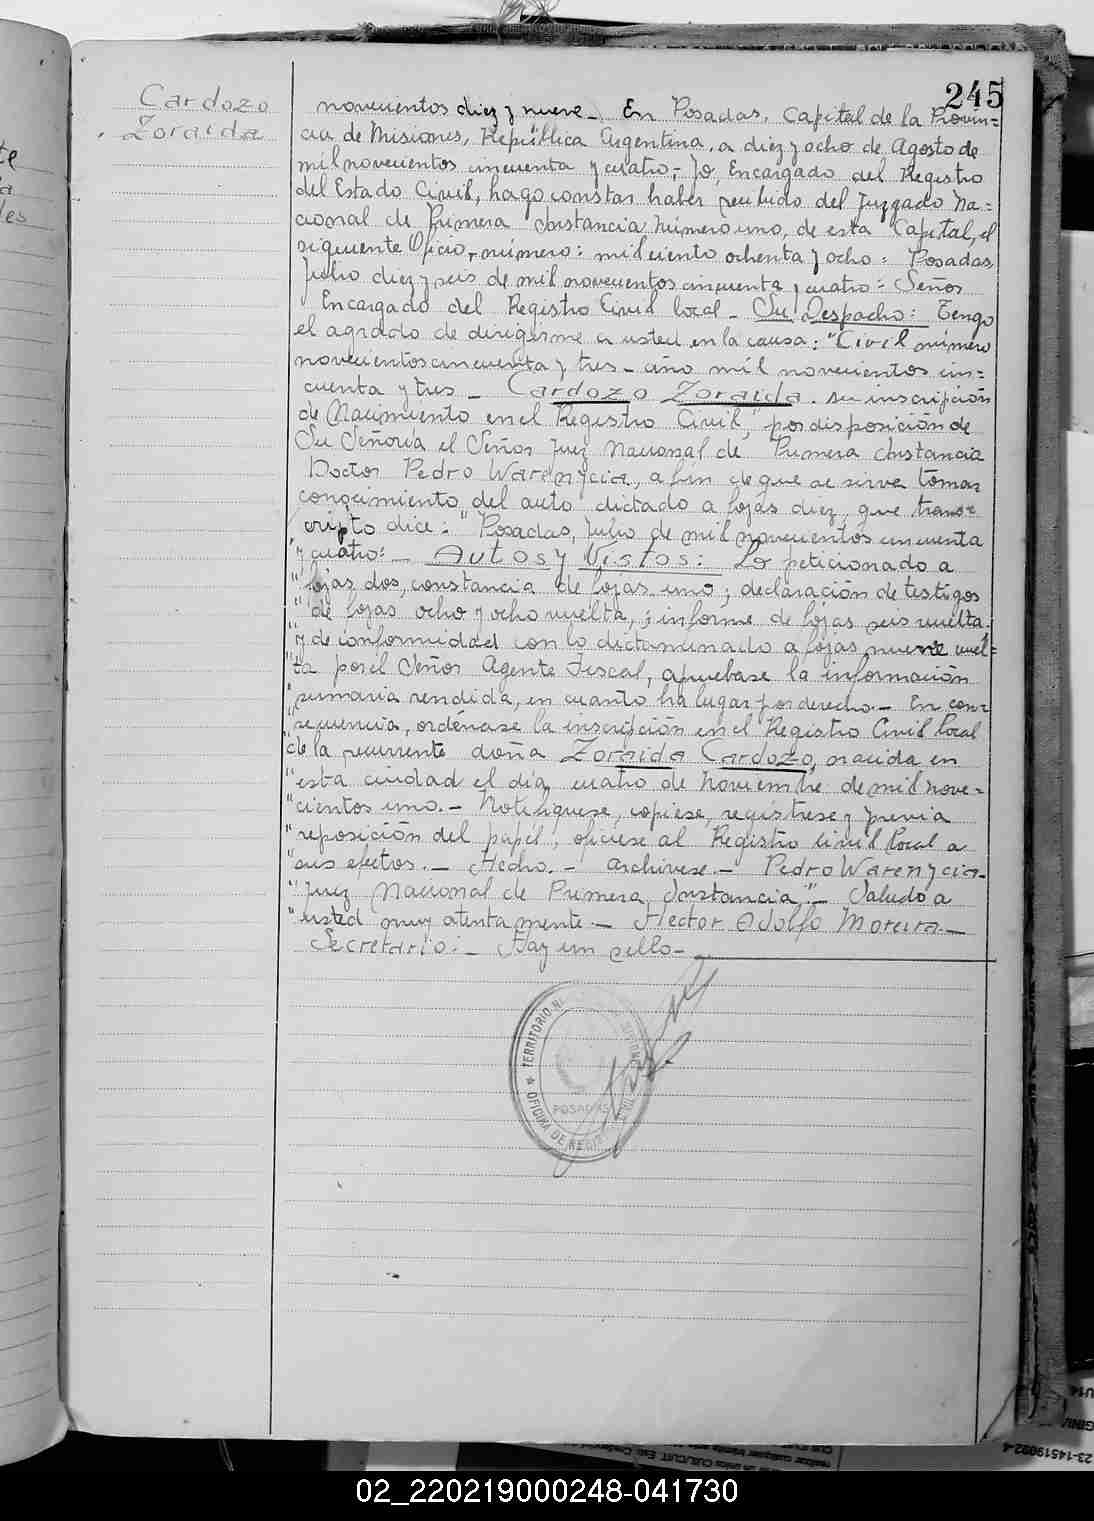 245
Cardozo
Zoraida
novecientos diez y nueve_ En Posadas, Capital de la Provin=
cia de Misiones, República Argentina, a diez y ocho de Agosto de
mil novecientos cincuenta y cuatro,- Yo, Encargado del Registro
del Estado Civil, hago constar haber recibido del Juzgado Na=
cional de Primera Instancia Número uno, de esta Capital, el
siguiente Oficio,- número: mil ciento ochenta y ocho: Posadas,
Julio diez y seis de mil novecientos cincuenta y cuatro: Señor
Encargado del Registro Civil local _ Su Despacho: Tengo
el agrado de dirigirme a usted en la causa: "Civil número
novecientos cincuenta y tres_ año mil novecientos cin=
cuenta y tres _ Cardozo Zoraida. su inscripción
de Nacimiento en el Registro Civil", por disposición de
Su Señoría el Señor Juez Nacional de Primera Instancia
Doctor Pedro Warenycia, a fin de que se sirva tomar
conocimiento del auto dictado a fojas diez, que trans=
cripto dice: "Posadas, Julio de mil novecientos cincuenta
"y cuatro: _ Autos y Vistos: Lo peticionado a
"fojas dos, constancia de fojas uno; declaración de testigos
"de fojas ocho y ocho vuelta,; informe de fojas seis vuelta
"y de conformidad con lo dictaminado a fojas nueve vuel=
"ta por el Señor Agente Fiscal, apruébase la información
"sumaria rendida, en cuanto ha lugar por derecho.- En con=
"secuencia, ordénase la inscripción en el Registro Civil local
"de la recurrente doña Zoraida Cardozo, nacida en
"esta ciudad el día cuatro de Noviembre de mil nove=
"cientos uno.- Notifíquese, cópiese, regístrese y previa
"reposición del papel, ofíciese al Registro Civil local a
"sus efectos.- Hecho.- archívese.- Pedro Warenycia-
"Juez Nacional de Primera Instancia".- Saludo a
"usted muy atentamente.- Hector Adolfo Moreira.-
Secretario:- Hay un sello-
TERRITORIO
POSADAS
OFICINA DE REGI
02_220219000248-041730